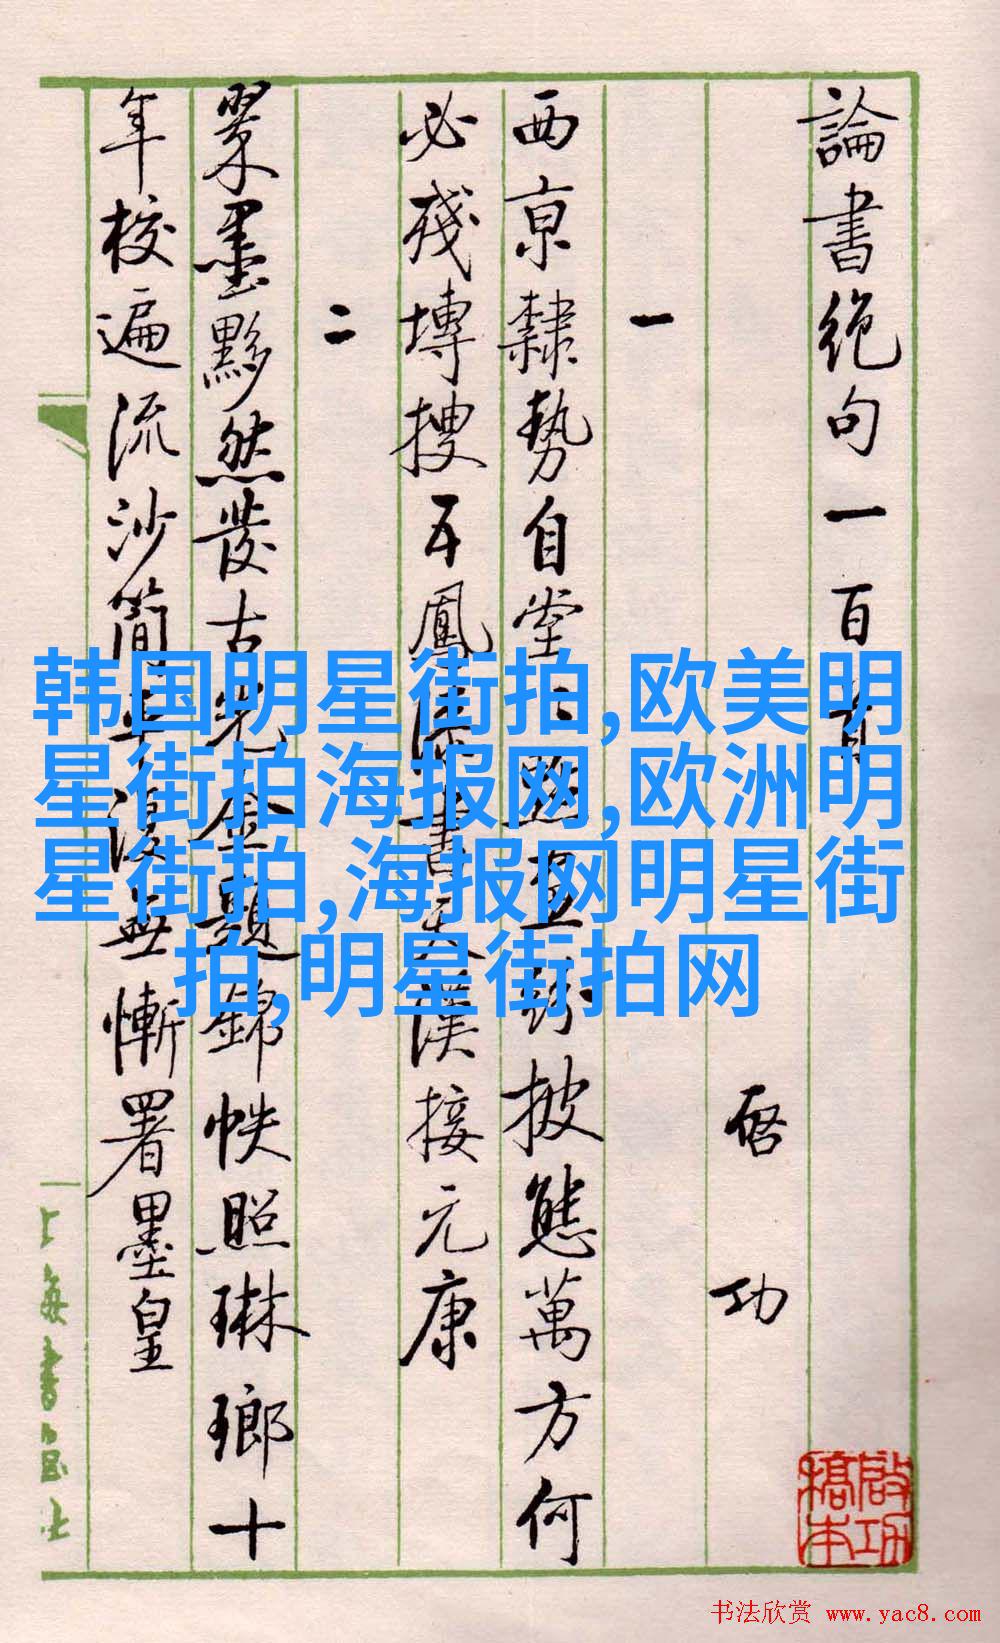 論書絶句一百首
启功
一
西京隸勢自堂〻點畫紛披態萬方何
必殘塼搜五鳳漆書天漢接元康
二
翠墨黟然發古光金題錦帙照琳瑯十
年校遍流沙簡平復無慚署墨皇
啟功
稿本
韩国明星街拍,欧美明
星街拍海报网,欧洲明
星街拍,海报网明星街
拍,明星街拍网
书法欣赏 www.yac8.com